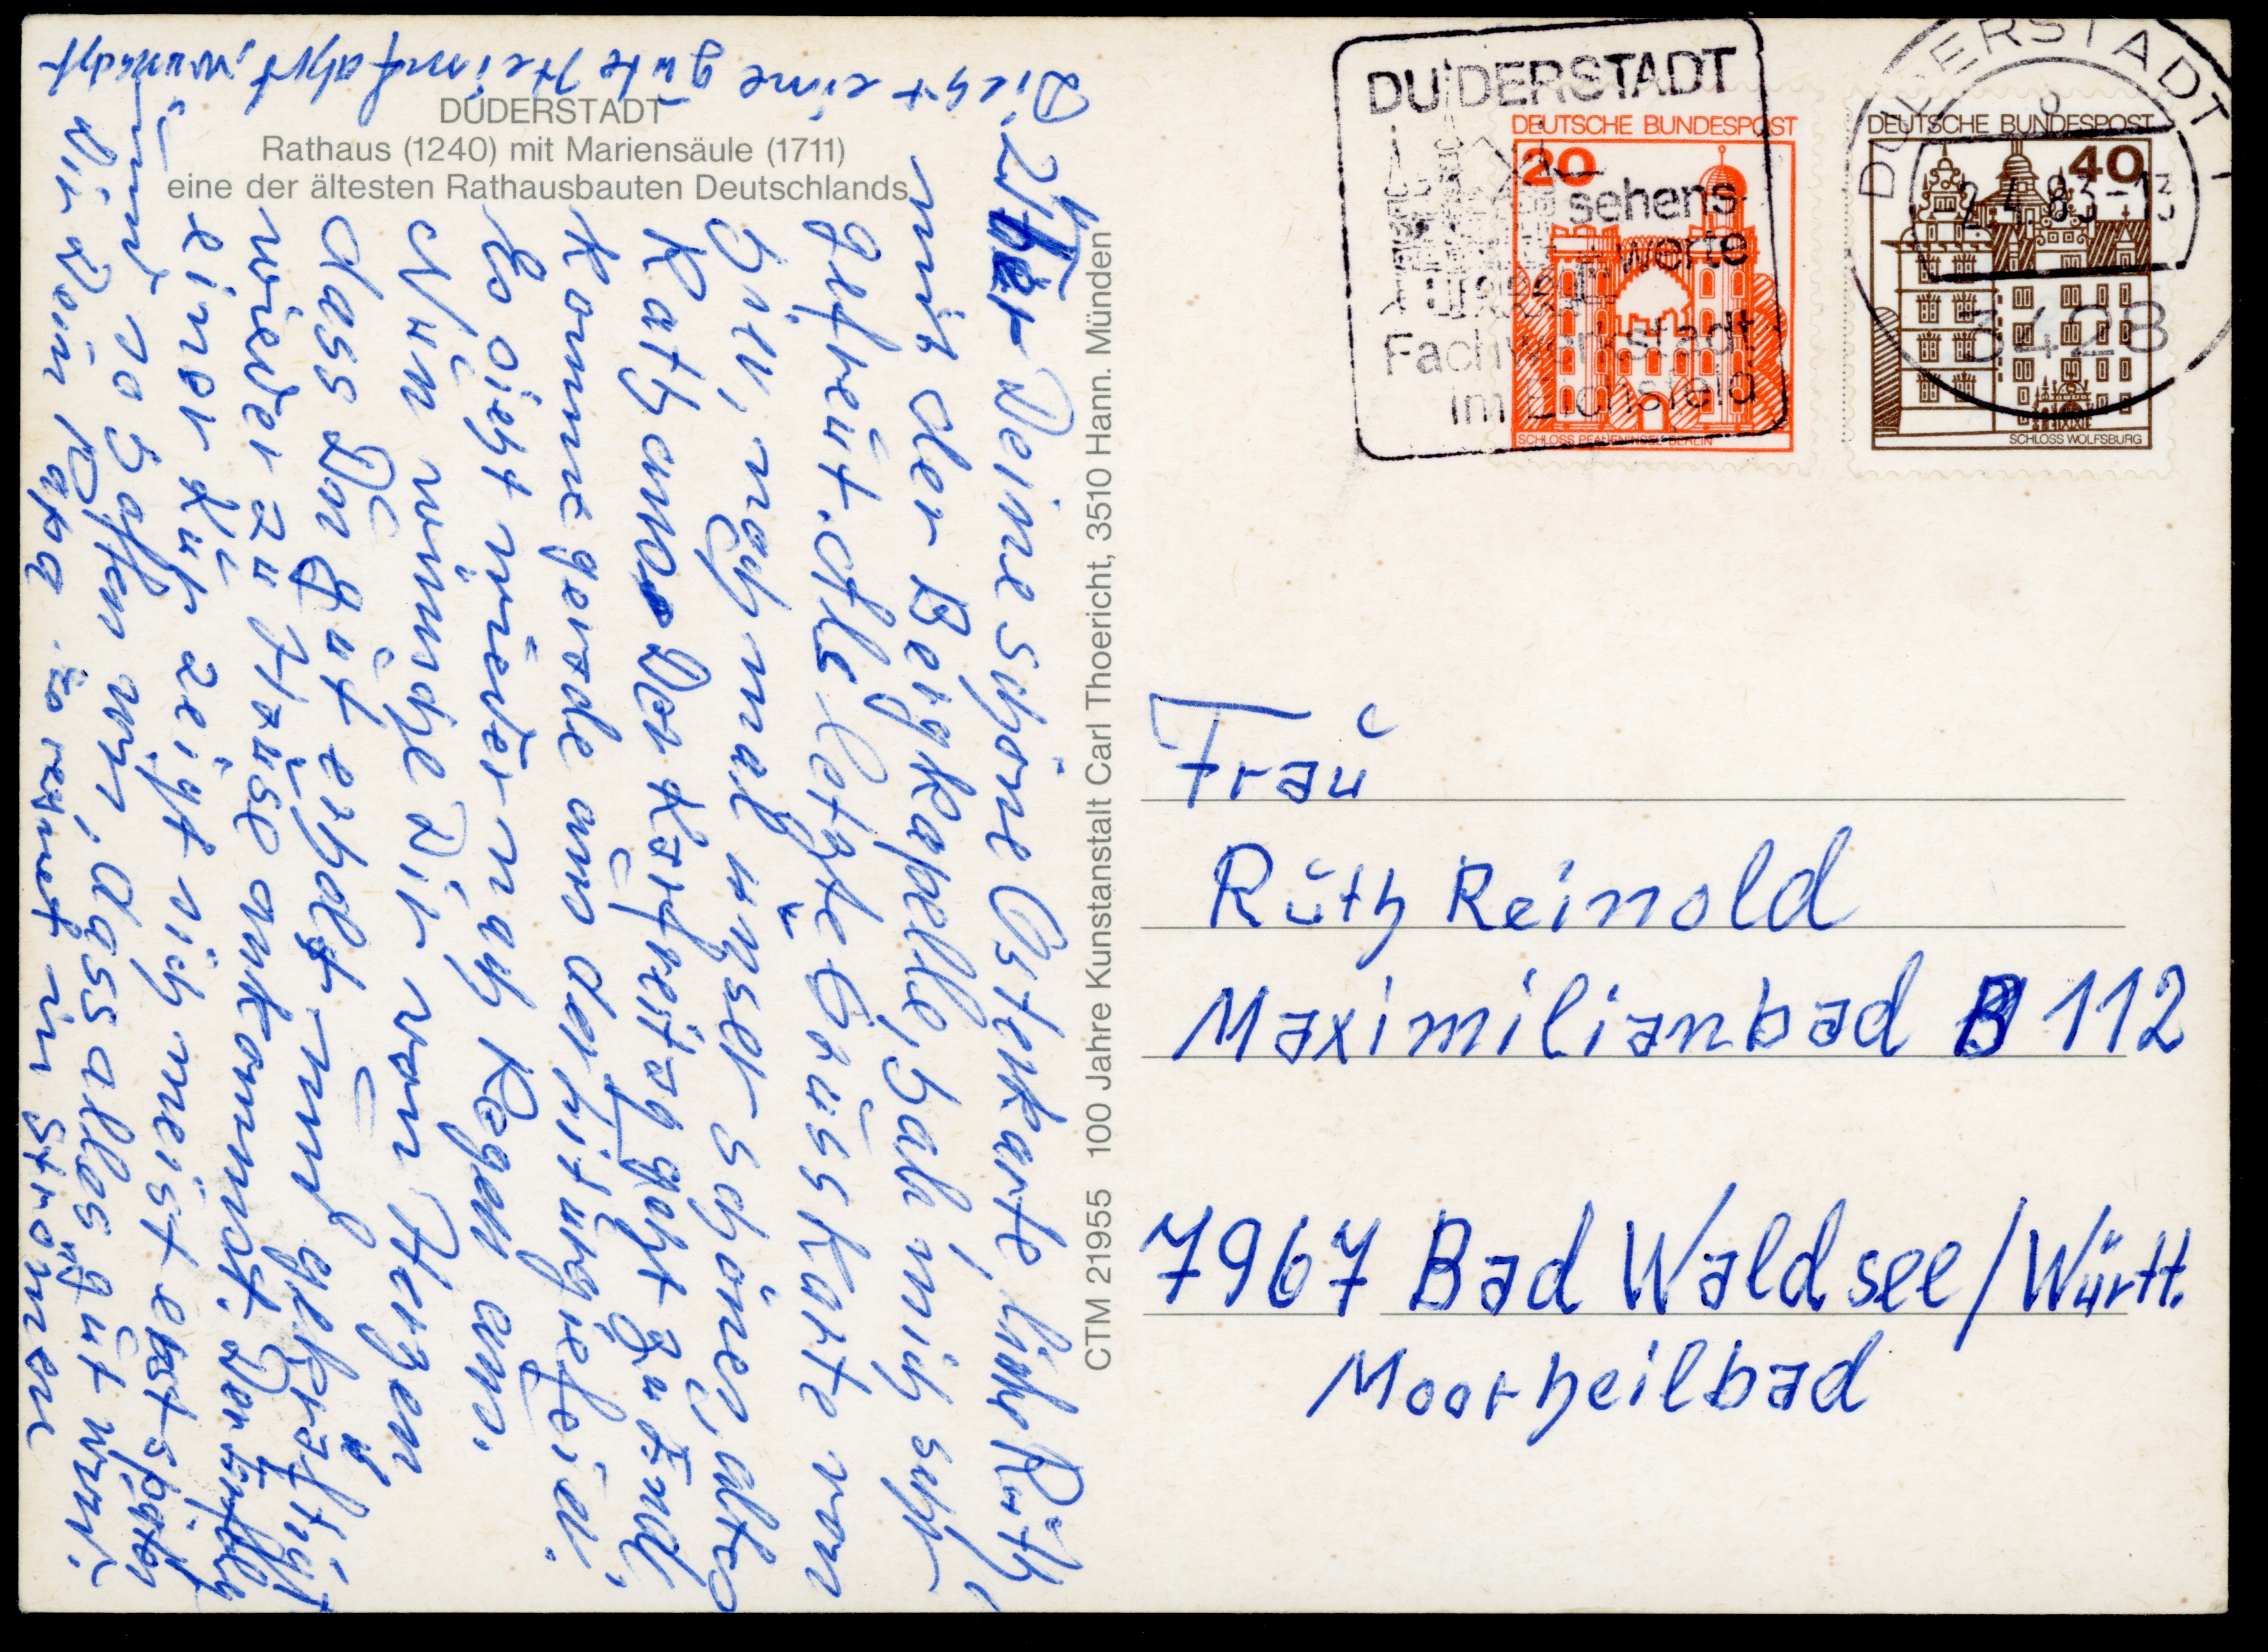 DUDERSTADT
Rathaus (1240) mit Mariensäule (1711)
eine der ältesten Rathausbauten Deutschlands
CTM 21955 100 Jahre Kunstanstalt Carl Thoericht, 3510 Hann. Münden
DUDERSTADT
sehens-
werte
Fachwerkstadt
im Eichsfeld
DEUTSCHE BUNDESPOST
20
SCHLOSS PFAUENINSEL BERLIN
DEUTSCHE BUNDESPOST
40
SCHLOSS WOLFSBURG
DUDERSTADT 1
2.4.83-13
3428
Über Deine schöne Osterkarte, liebe Ruth,
mit der Bergkapelle, hab' ich mich sehr
gefreut. Als letzte Grusskarte von
hier, noch mal unser schönes, altes
Rathaus. Der Karfreitag geht zu End',
komme gerade aus der
Es sieht wieder nach Regen aus.
Nun wünsche Dir von Herzen
dass Du gut erholt und gekräftigt
wieder zu Hause ankommst. Der Erfolg
einer Kur zeigt sich meist erst später
und so hoffen wir, dass alles gut wird.
Dir Dein Papa. Es regnet in Strömen
Dir eine gute Heimfahrt, wünscht
Frau
Ruth Reinold
Maximilianbad B 112
7967 Bad Waldsee/Württ.
Moorheilbad